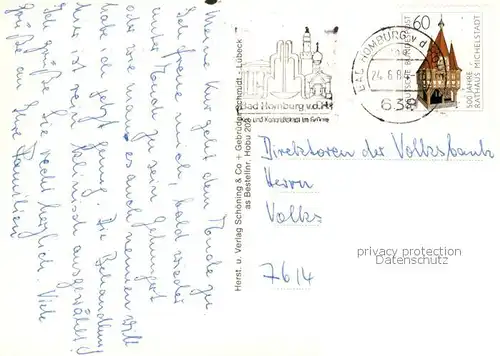 Meine Kur geht dem Ende zu.
Ich freue mich, bald wieder
unter Euch zu sein. Gehungert
oder wie man es auch nennen will
habe ich jetzt genug. Die Behandlung
hier ist rein klinisch ausgewählt!
Ich grüße Sie recht herzlich. Viele
Grüße an Eure Familien
Herst. u. Verlag Schöning & Co + Gebrüder Schmidt, Lübeck
as Bestellnr. Hobu 203
Bad Homburg v.d.H.
BAD HOMBURG v d
24.6.8
638
60
DEUTSCHE BUNDESPOST
500 JAHRE
RATHAUS MICHELSTADT
Direktoren der Volksbank
Herrn
Volks
7614
privacy protection
Datenschutz